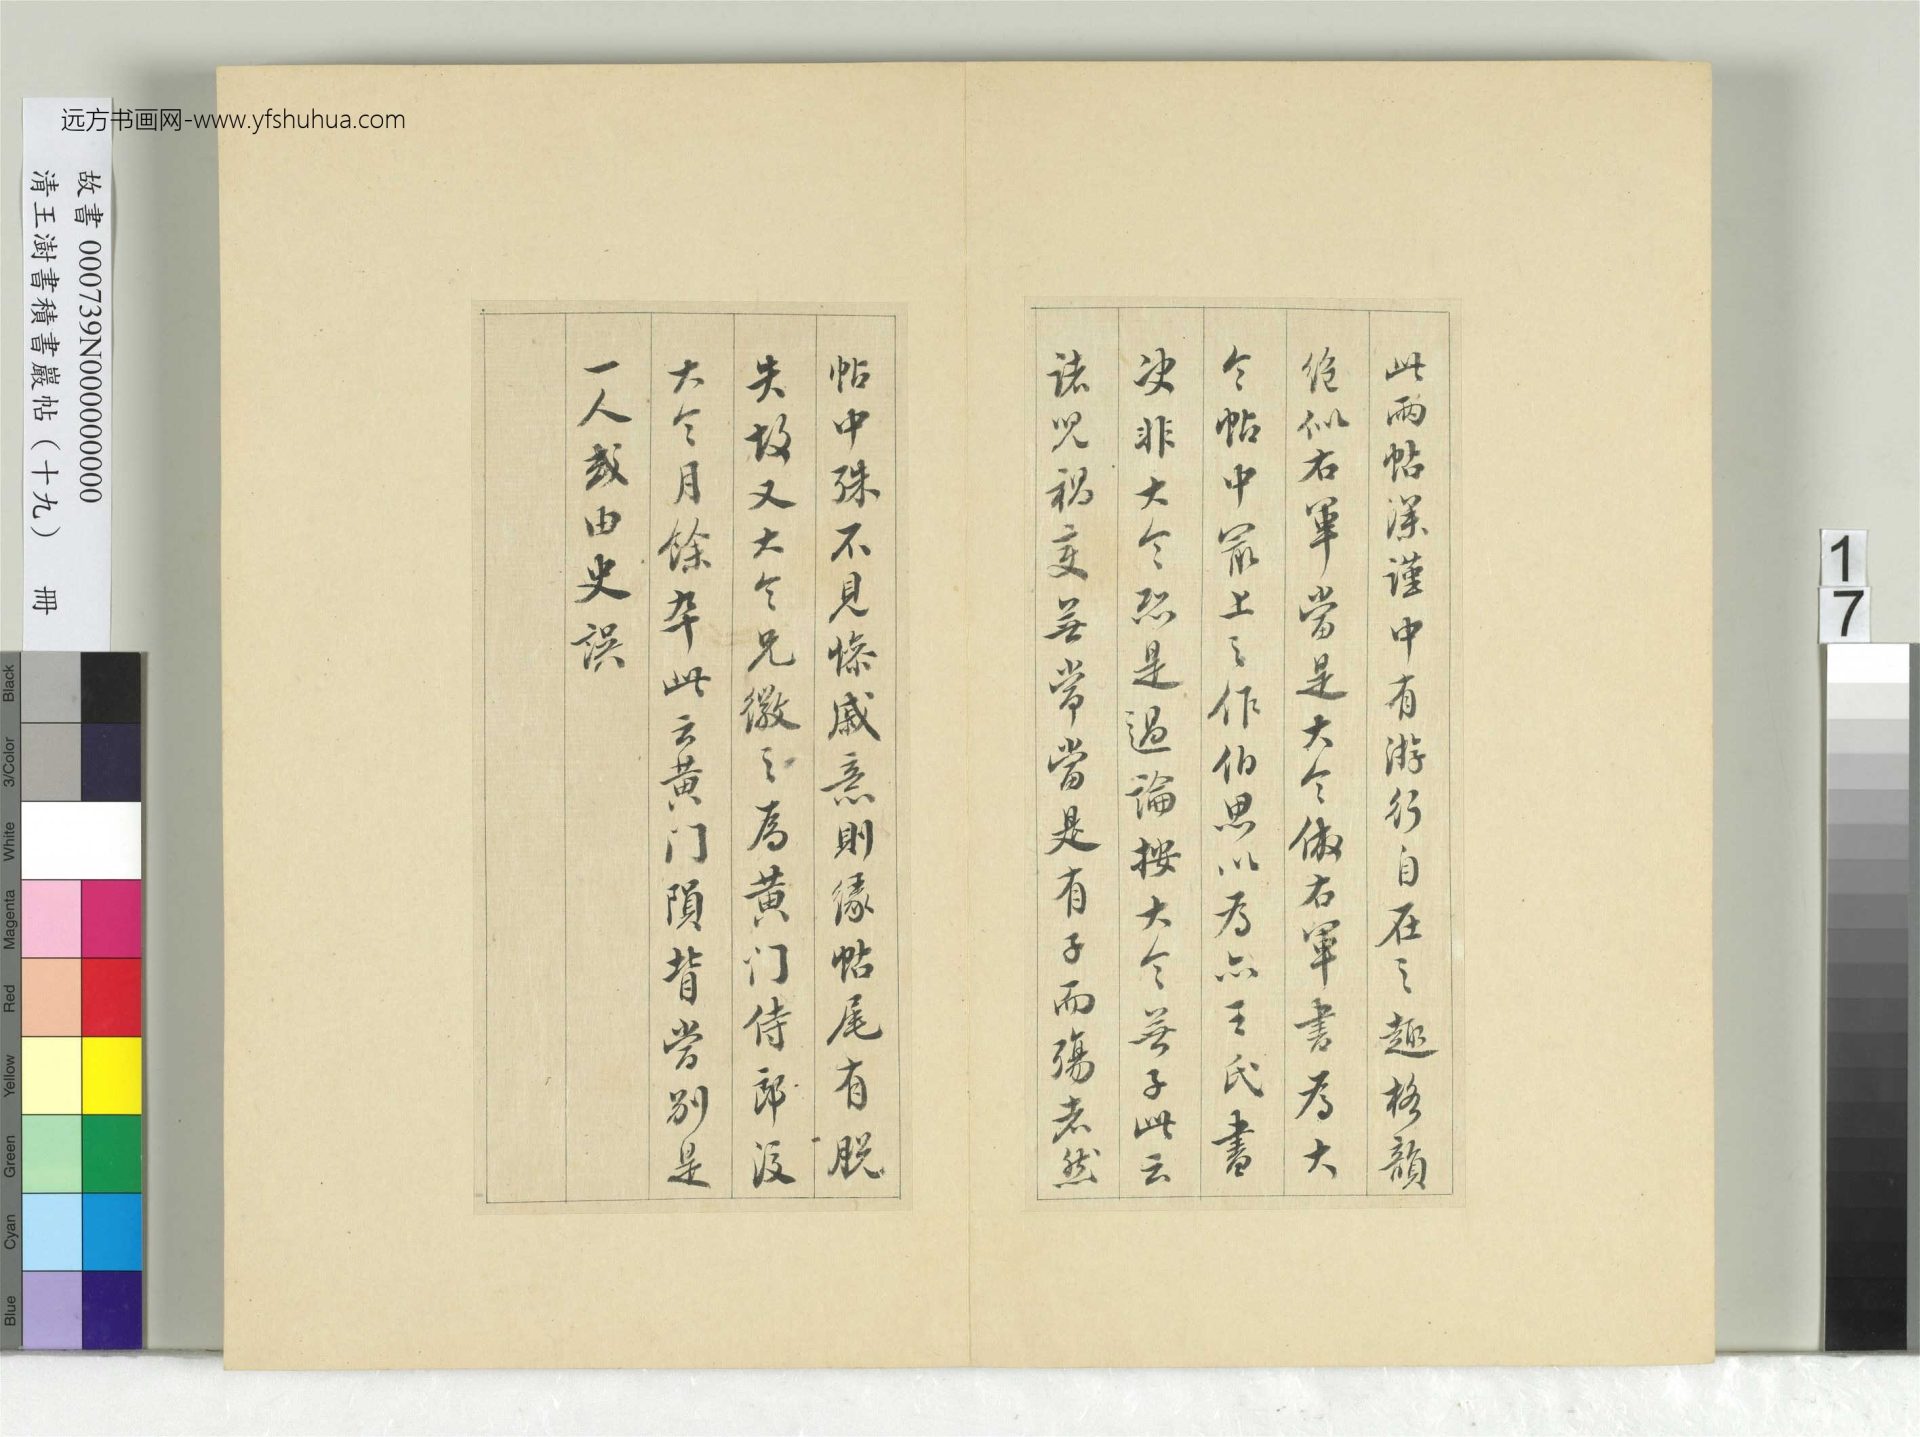 远方书画网-www.yfshuhua.com
故書 000739N000000000
清王澍書積書巖帖（十九） 冊
17
此兩帖深謹中有游行自在之趣格韻
絶似右軍當是大令倣右軍書為大
令帖中最上之作伯思以為亦王氏書
決非大令恐是過論按大令無子此云
諸兒禍變無常當是有子而殤者然
帖中殊不見慘戚意則緣帖尾有脫
失故又大令兄徽之為黃门侍郎沒
大令月餘卒此云黃门隕背當別是
一人或由史誤
Black
3/Color
White
Magenta
Red
Yellow
Green
Cyan
Blue